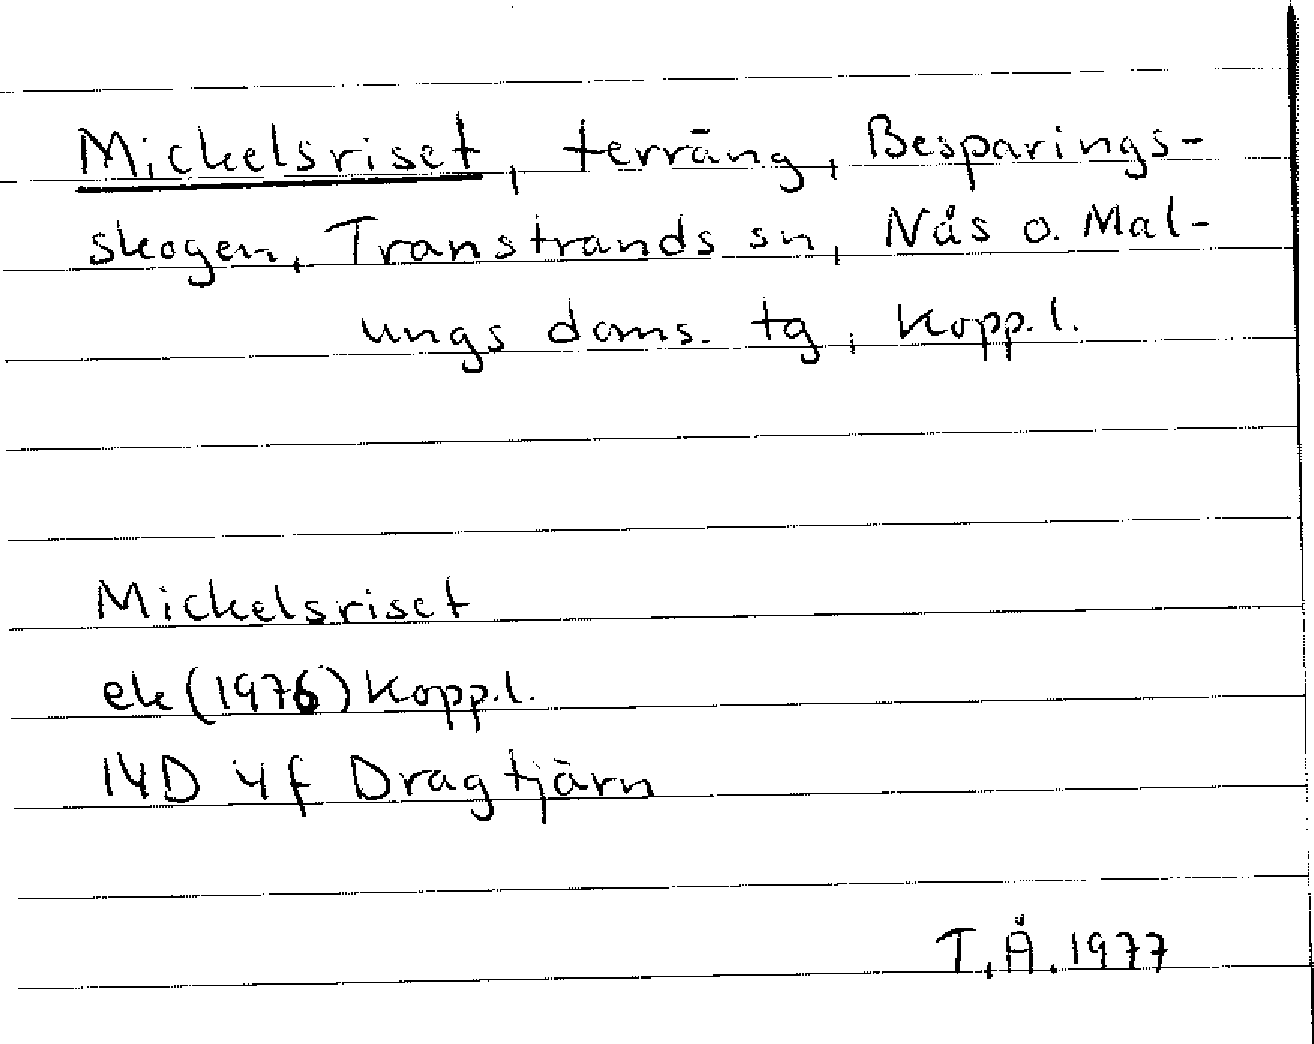 Mickelsriset, terräng, Besparings-
skogen, Transtrands sn, Nås o. Mal-
ungs doms. tg, Kopp.l.
Mickelsriset
ek (1976) Kopp.l.
14D 4f Dragtjärn
T.Å.1977